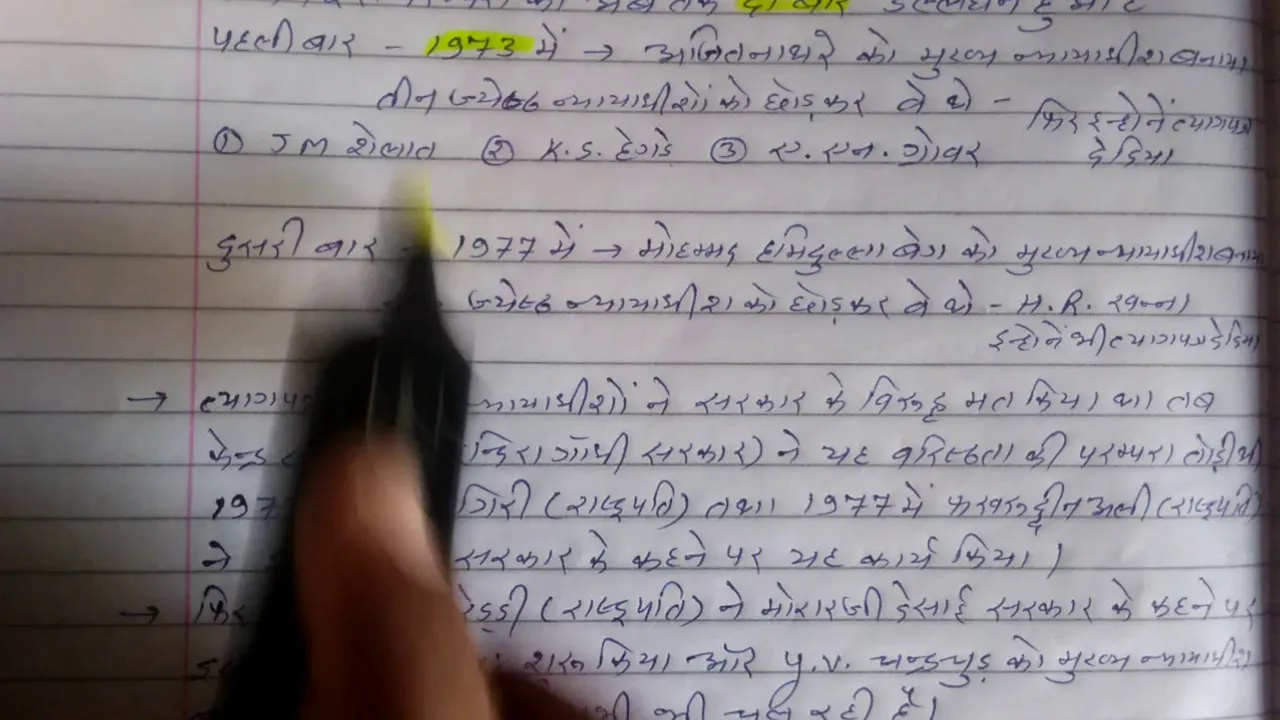 दो बार उल्लंघन हुआ है
पहली बार - 1973 में → अजितनाथ रे को मुख्य न्यायाधीश बनाया
तीन ज्येष्ठ न्यायाधीशों को छोड़कर वे थे -
फिर इन्होंने त्यागपत्र
① JM शेलात ② K.S. हेगड़े ③ ए.एन. ग्रोवर
दे दिया
दुसरी बार - 1977 में → मोहम्मद हमिदुल्ला बेग को मुख्य न्यायाधीश बनाया
ज्येष्ठ न्यायाधीश को छोड़कर वे थे - H.R. खन्ना
इन्होंने भी त्यागपत्र दे दिया
→ त्यागप न्यायाधीशों ने सरकार के विरूद्ध मत किया था तब
केन्द्र गाँधी सरकार) ने यह वरिष्ठता की परम्परा तोड़ी थी
197 गिरी (राष्ट्रपति) तथा 1977 में फखरूद्दीन अली (राष्ट्रपति)
ने सरकार के कहने पर यह कार्य किया।
→ फिर रेड्डी (राष्ट्रपति) ने मोरारजी देसाई सरकार के कहने पर
किया और Y.V. चन्द्रचुड़ को मुख्य न्यायाधीश
भी चल रही है।